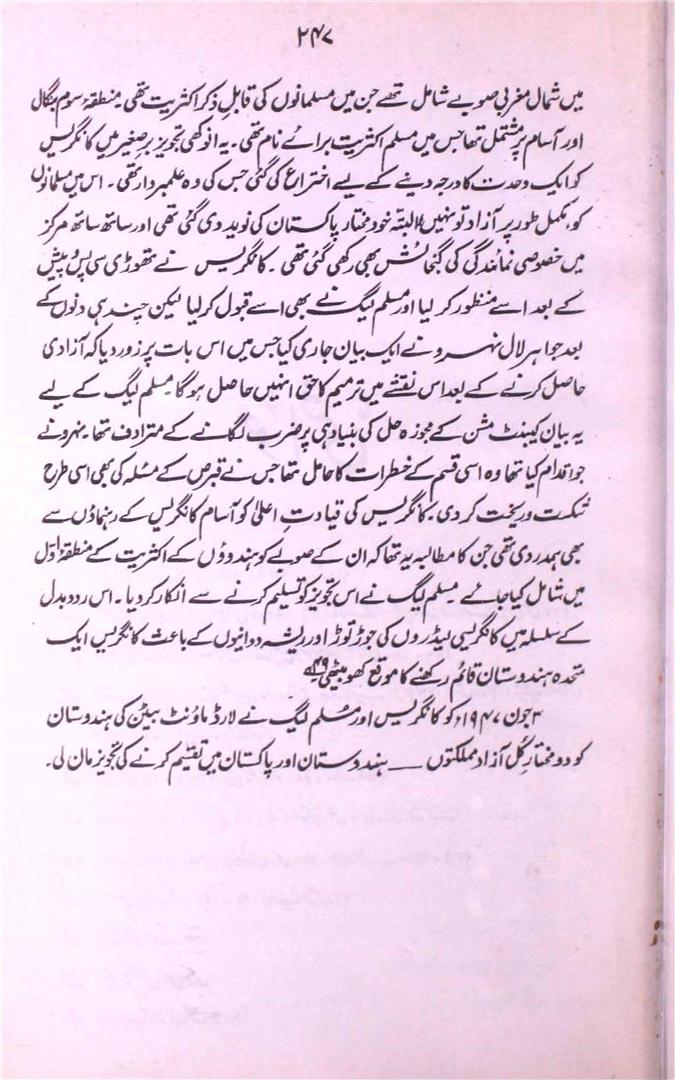 ۲۴۷
میں شمال مغربی صوبے شامل تھے جن میں مسلمانوں کی قابلِ ذکر اکثریت تھی۔ منطقۂ سوم بنگال
اور آسام پر مشتمل تھا جس میں مسلم اکثریت برائے نام تھی۔ یہ انوکھی تجویز برصغیر میں کانگریس
کو ایک وحدت کا درجہ دینے کے لیے اختراع کی گئی جس کی وہ علمبردار تھی۔ اس میں مسلمانوں
کو مکمل طور پر آزاد تو نہیں البتّہ خود مختار پاکستان کی نوید دی گئی تھی اور ساتھ ساتھ مرکز
میں خصوصی نمائندگی کی گنجائش بھی رکھی گئی تھی۔ کانگریس نے تھوڑی سی پس و پیش
کے بعد اسے منظور کر لیا اور مسلم لیگ نے بھی اسے قبول کر لیا لیکن چند ہی دنوں کے
بعد جواہر لال نہرو نے ایک بیان جاری کیا جس میں اس بات پر زور دیا کہ آزادی
حاصل کرنے کے بعد اس نقشے میں ترمیم کا حق انہیں حاصل ہوگا۔ مسلم لیگ کے لیے
یہ بیان کیبنٹ مشن کے مجوزہ حل کی بنیاد ہی پر ضرب لگانے کے مترادف تھا۔ نہرو نے
جو اقدام کیا تھا وہ اسی قسم کے خطرات کا حامل تھا جس نے قبرص کے مسئلہ کی بھی اسی طرح
شکست و ریخت کر دی۔ کانگریس کی قیادتِ اعلیٰ کو آسام کانگریس کے رہنماؤں سے
بھی ہمدردی تھی جن کا مطالبہ یہ تھا کہ ان کے صوبے کو ہندوؤں کے اکثریت کے منطقۂ اوّل
میں شامل کیا جائے۔ مسلم لیگ نے اس تجویز کو تسلیم کرنے سے انکار کر دیا۔ اس ردوبدل
کے سلسلہ میں کانگریسی لیڈروں کی جوڑ توڑ اور ریشہ دوانیوں کے باعث کانگریس ایک
متحدہ ہندوستان قائم رکھنے کا موقع کھو بیٹھی۔
۳ جون ۱۹۴۷ء کو کانگریس اور مسلم لیگ نے لارڈ ماؤنٹ بیٹن کی ہندوستان
کو دو مختارِ کُل آزاد مملکتوں — ہندوستان اور پاکستان میں تقسیم کرنے کی تجویز مان لی۔